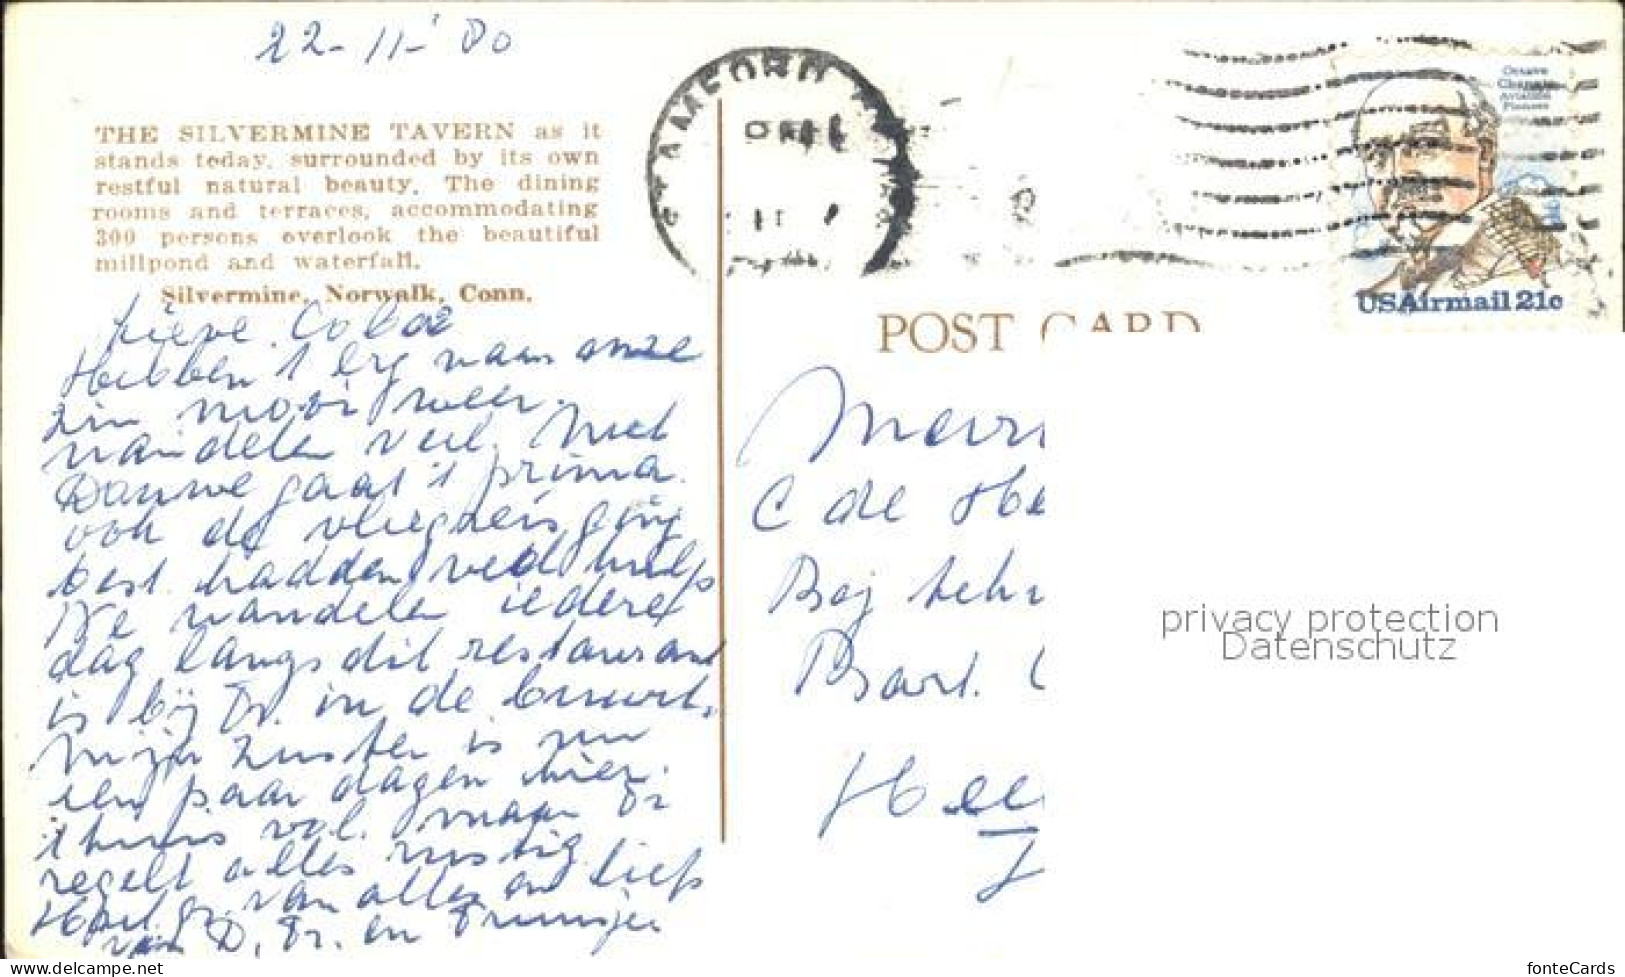 22-11-'80
THE SILVERMINE TAVERN as it
stands today, surrounded by its own
restful natural beauty. The dining
rooms and terraces, accommodating
300 persons overlook the beautiful
millpond and waterfall.
Silvermine, Norwalk, Conn.
Lieve
Hebben 't erg naar onze
zin mooi weer.
wandelen veel. Met
Douwe gaat 't prima.
ook de vliegreis ging
best. hadden veel hulp
We wandelen iedere
dag langs dit restaurant
is bij Tr. in de buurt.
Mijn zuster is nu
een paar dagen hier.
't huis vol. maar Tr
regelt alles rustig.
Hart. gr. van alles en liefs
van D, Tr. en Truusje
STAMFORD
Octave
Chanute
Aviation
Pioneer
USAirmail 21c
POST CARD
C de
privacy protection
Datenschutz
www.delcampe.net
fonteCards